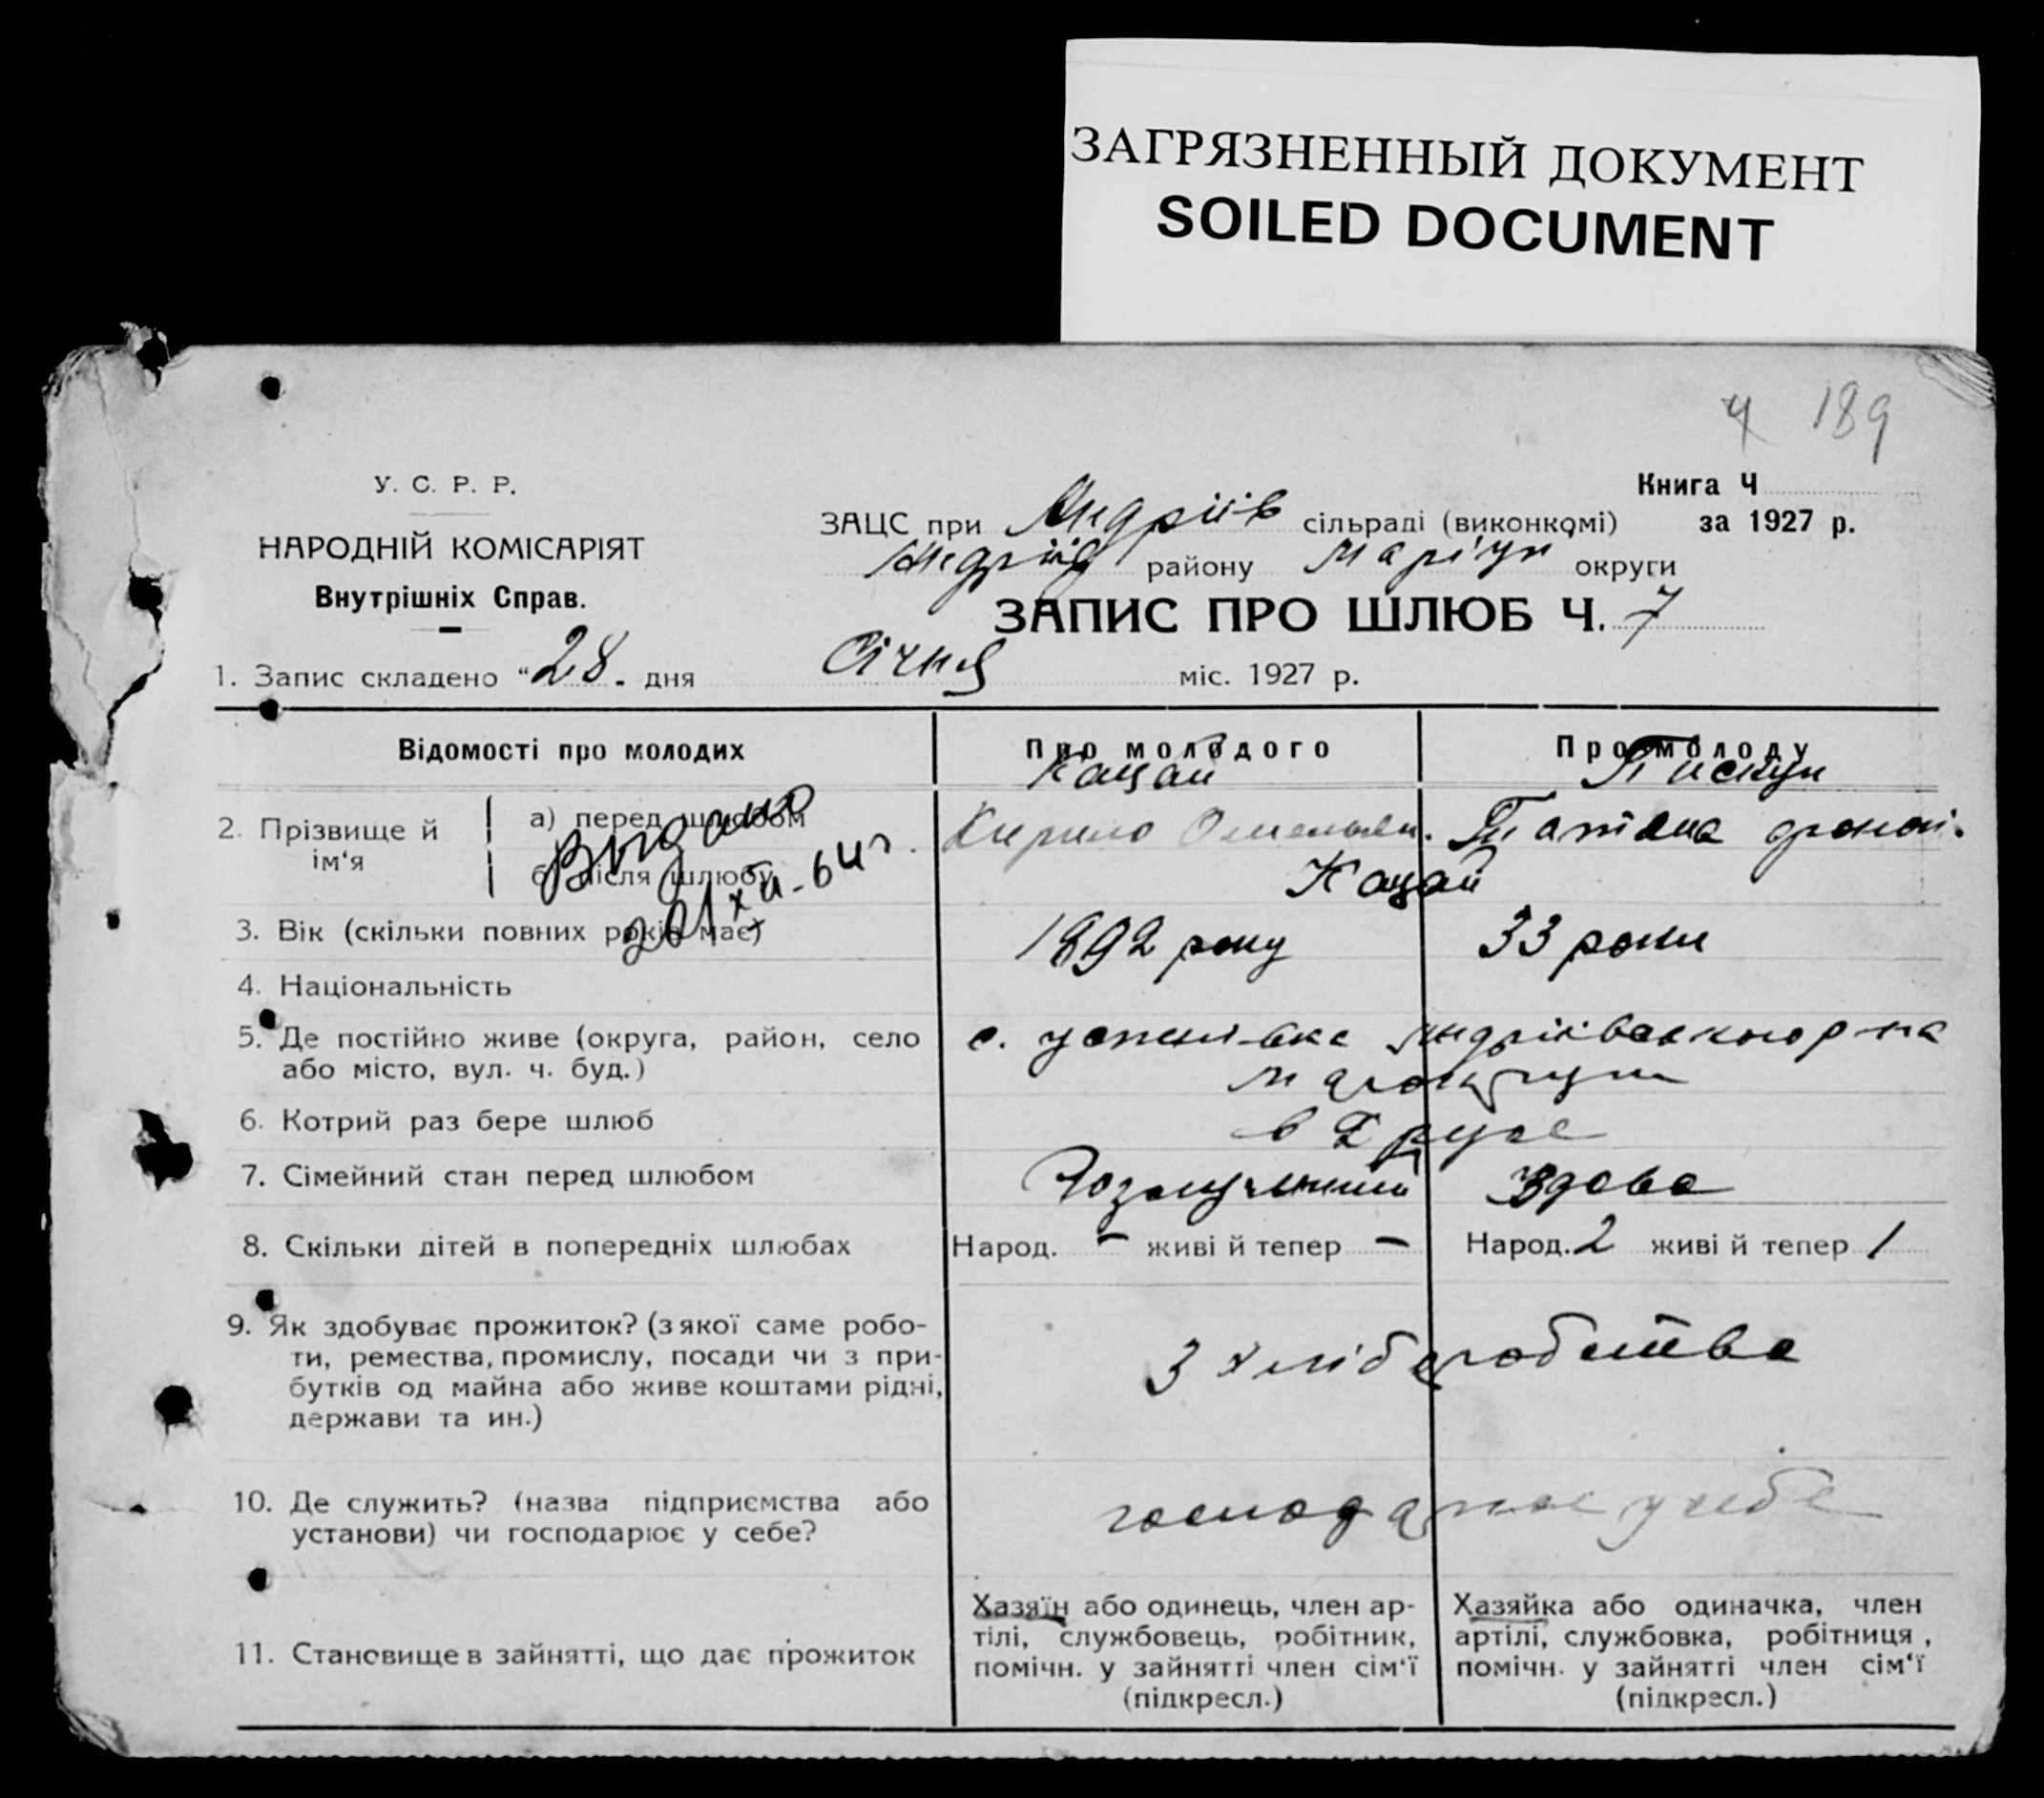 ЗАГРЯЗНЕННЫЙ ДОКУМЕНТ
SOILED DOCUMENT
4 189
У. С. Р. Р.
НАРОДНІЙ КОМІСАРІЯТ
Внутрішніх Справ.
Книга Ч
за 1927 р.
ЗАЦС при Андріїв сільраді (виконкомі)
Андріїв району Маріуп округи
ЗАПИС ПРО ШЛЮБ Ч. 7
1. Запис складено "28. дня Січня міс. 1927 р.
Відомості про молодих
Про молодого
Про молоду
2. Прізвище й ім'я
а) перед шлюбом
б) після шлюбу
Выдано
Кацай
Кирило Омельян.
Пискун
Татяна
Кацай
3. Вік (скільки повних років має)
1892 року
33 роки
4. Національність
5. Де постійно живе (округа, район, село
або місто, вул. ч. буд.)
с. Успенівка Андріївського р-на
6. Котрий раз бере шлюб
в 2 друге
7. Сімейний стан перед шлюбом
Розлучений
Вдова
8. Скільки дітей в попередніх шлюбах
Народ. – живі й тепер –
Народ. 2 живі й тепер 1
9. Як здобуває прожиток? (з якої саме робо-
ти, ремества, промислу, посади чи з при-
бутків од майна або живе коштами рідні,
держави та ин.)
З хліборобства
10. Де служить? (назва підприємства або
установи) чи господарює у себе?
господарює у себе
11. Становище в зайнятті, що дає прожиток
Хазяїн або одинець, член ар-
тілі, службовець, робітник,
помічн. у зайнятті член сім'ї
(підкресл.)
Хазяйка або одиначка, член
артілі, службовка, робітниця,
помічн. у зайнятті член сім'ї
(підкресл.)